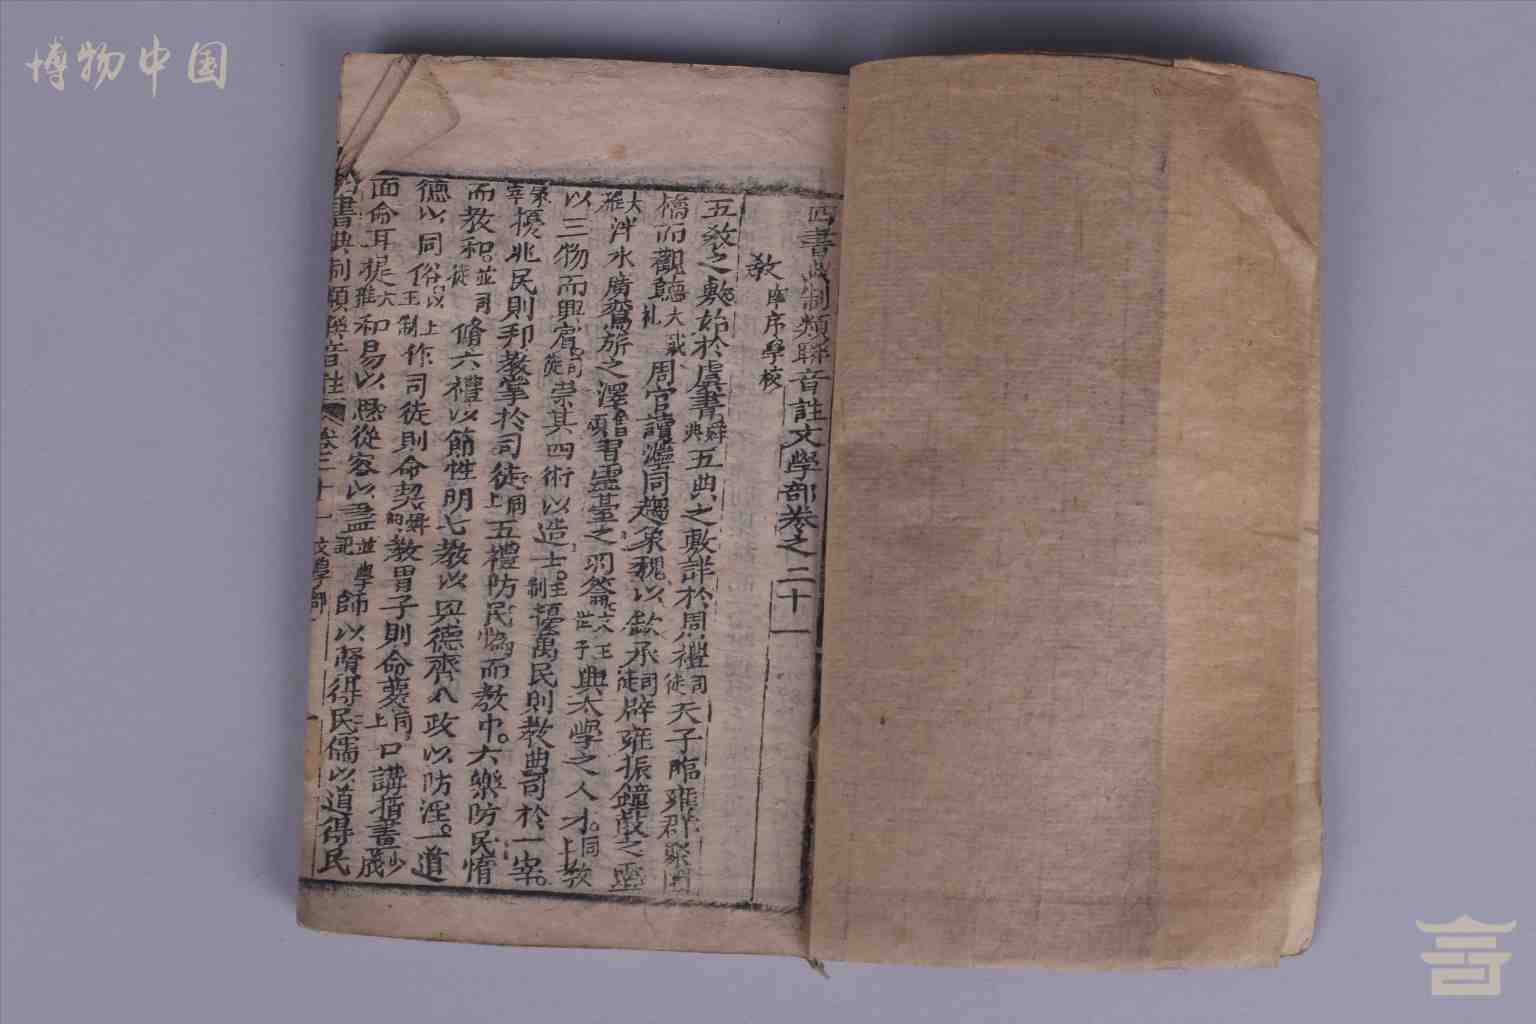 博物中国
四書典制類聯音註文學部卷之三十一
教 庠序學校
五教之敷始於虞書舜典五典之敷詳於周禮司徒天子臨雍群聚圜
橋而觀聽大戴礼周官讀灋同趨象魏以欽承司徒辟雍振鐘鼓之靈
大雅泮水廣鶯旂之澤魯頌書靈臺之羽籥文王世子興太學之人才同上教
以三物而興賓司徒崇其四術以造士王制擾萬民則教典司於一宰
冢宰擾兆民則邦教掌於司徒周上五禮防民偽而教中六樂防民情
而教和並司徒脩六禮以節性明七教以興德齊八政以防淫一道
德以同俗以上王制作司徒則命契舜典教胄子則命夔同上口講指畫少儀
面命耳提大雅和易以思從容以盡並學記師以賢得民儒以道得民
四書典制類聯音註 卷三十一 文學部